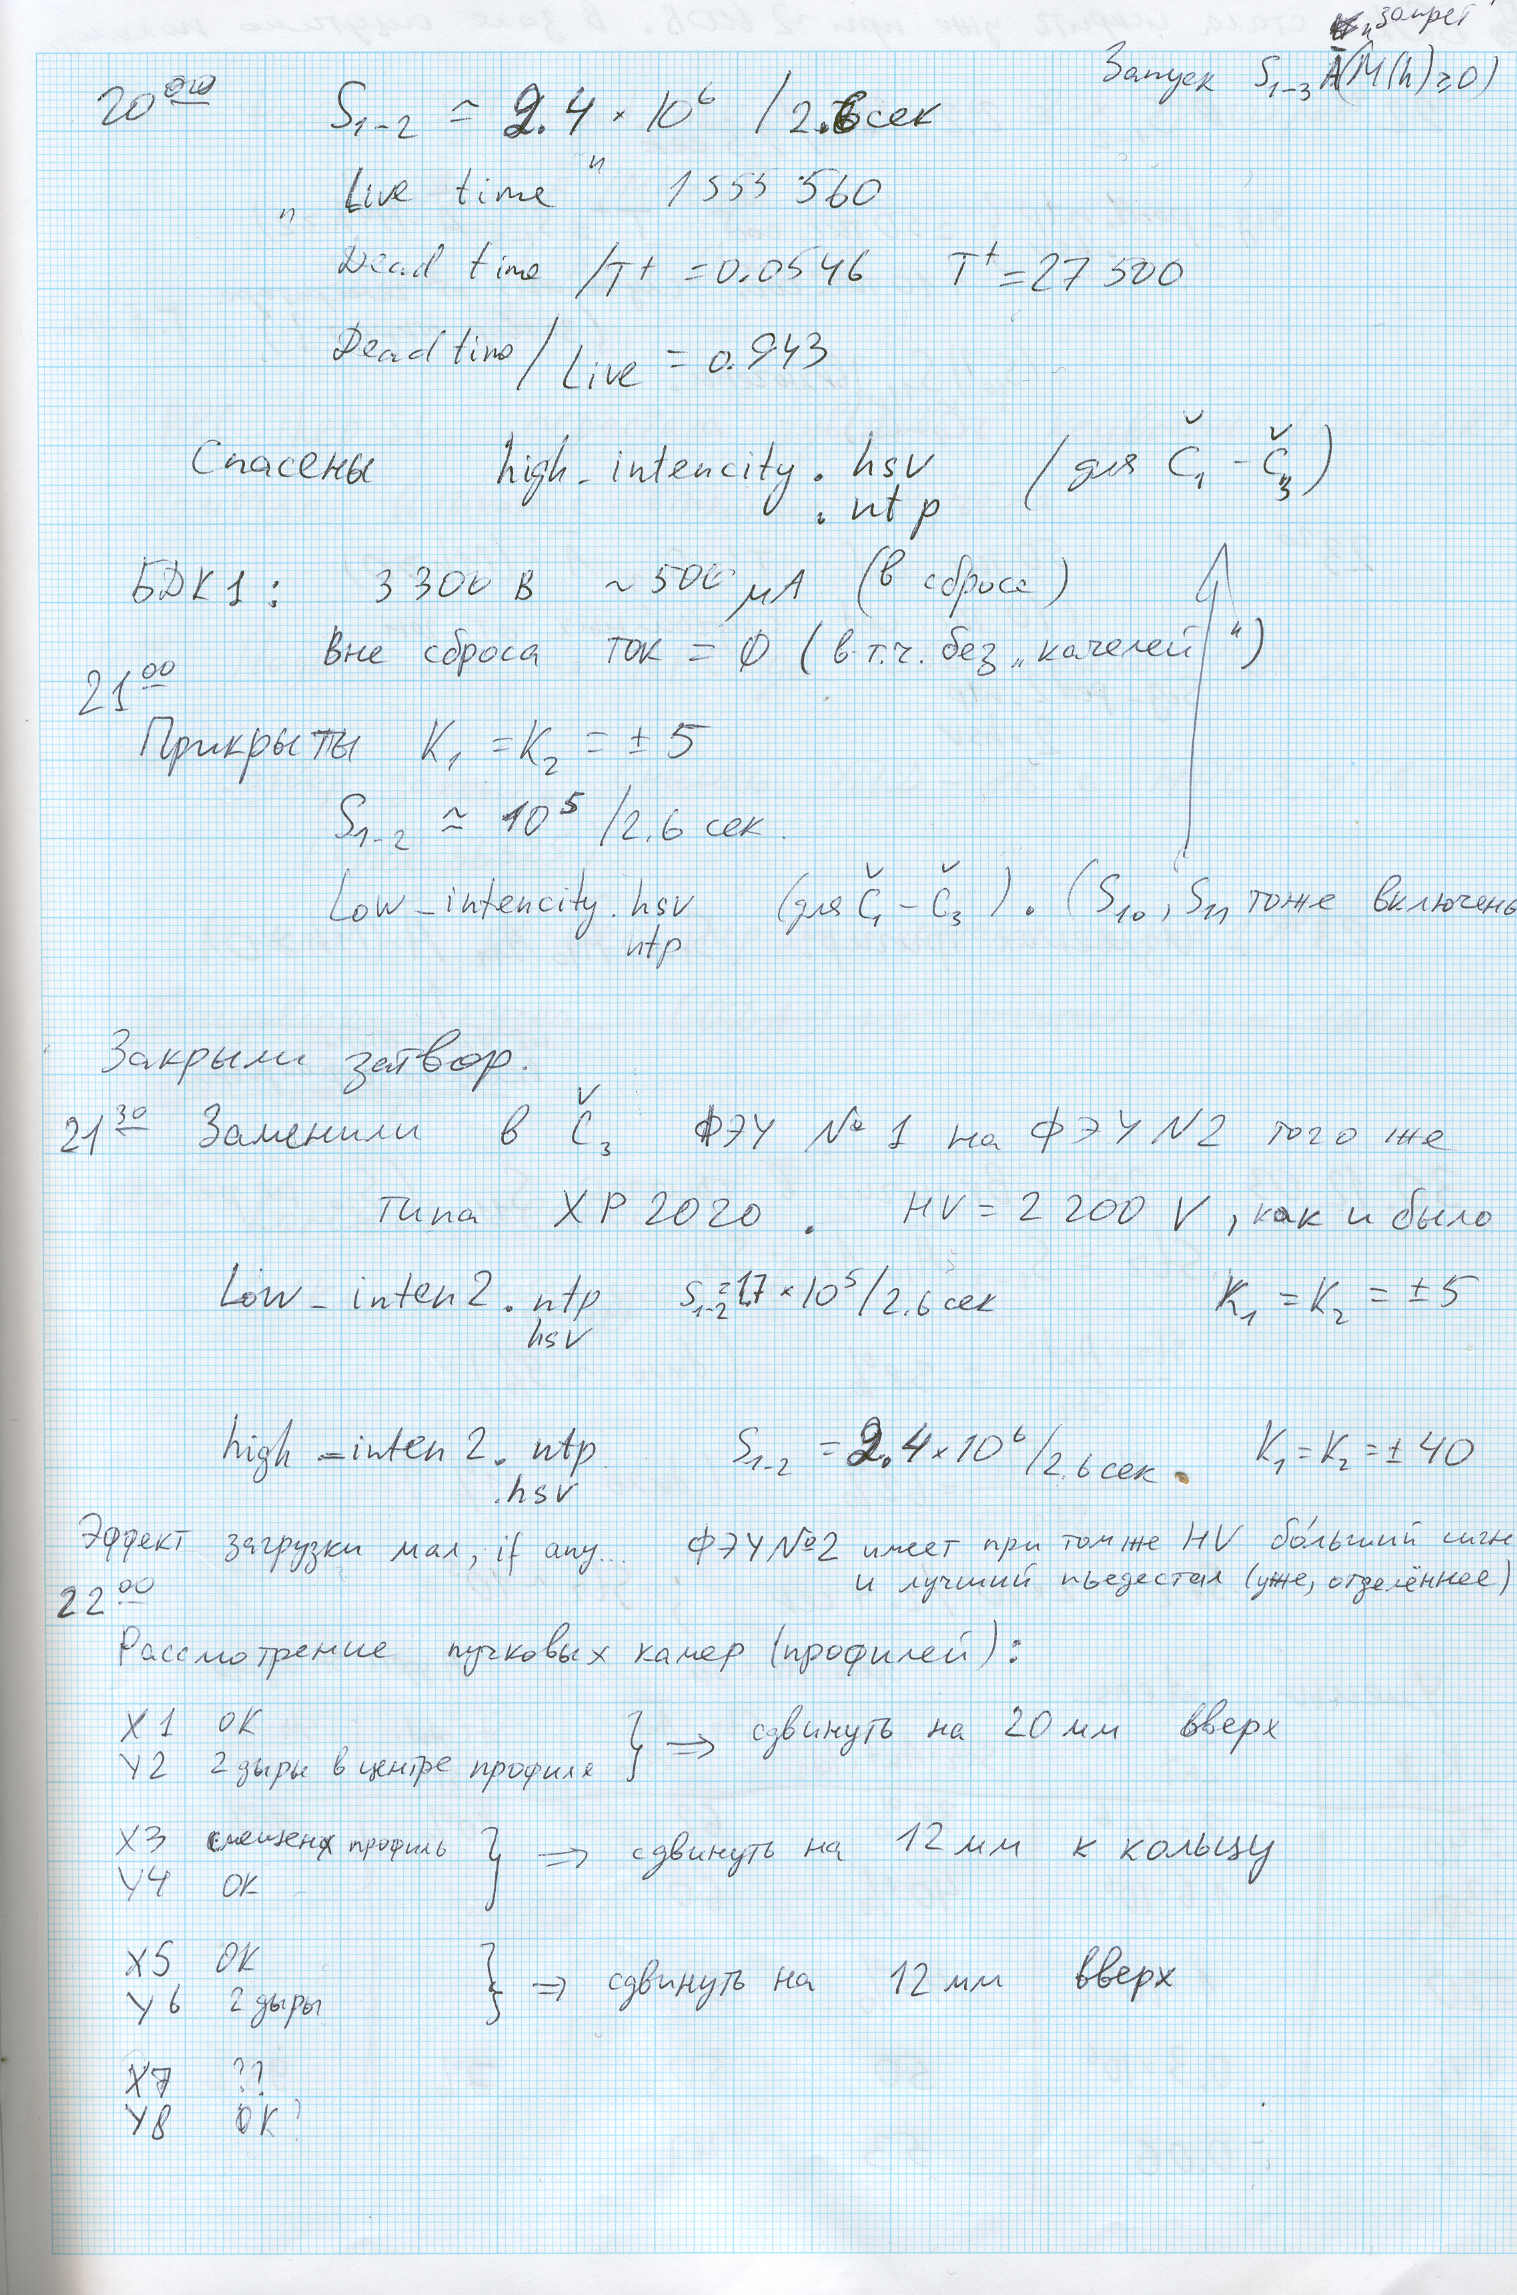 и запрет
Запуск S₁₋₃ (M(h)≥0)
20⁰⁰ S₁₋₂ ≃ 2.4 × 10⁶ / 2.6 сек
"Live time" 1555560
Dead time / T⁺ = 0.0546 T⁺ = 27500
Dead time / Live = 0.943
Спасены high_intencity.hsv (для Č₁ – Č₃)
.ntp
БДК1: 3300 В ~500 μA (в сбросе)
Вне сброса ток = 0 (в т.ч. без „качелей")
21⁰⁰
Прикрыты K₁ = K₂ = ± 5
S₁₋₂ ≃ 10⁵ / 2.6 сек.
Low_intencity.hsv (для Č₁ – Č₃). (S₁₀, S₁₁ тоже включены
ntp
Закрыли затвор.
21³⁰ Заменили в Č₃ ФЭУ №1 на ФЭУ N2 того же
типа XP2020. HV = 2200 V, как и было
Low_inten2.ntp S₁₋₂ = 1.7 × 10⁵ / 2.6 сек K₁ = K₂ = ± 5
hsv
high_inten2.ntp S₁₋₂ = 2.4 × 10⁶ / 2.6 сек. K₁ = K₂ = ± 40
.hsv
Эффект загрузки мал, if any... ФЭУ №2 имеет при том же HV бо́льший сигн
и лучший пьедестал (уже, отделённее)
22⁰⁰
Рассмотрение пучковых камер (профилей):
X1 OK
Y2 2 дыры в центре профиля } ⇒ сдвинуть на 20 мм вверх
X3 смещен профиль } ⇒ сдвинуть на 12 мм к кольцу
Y4 OK
X5 OK } ⇒ сдвинуть на 12 мм вверх
Y6 2 дыры
X7 ??
Y8 OK?